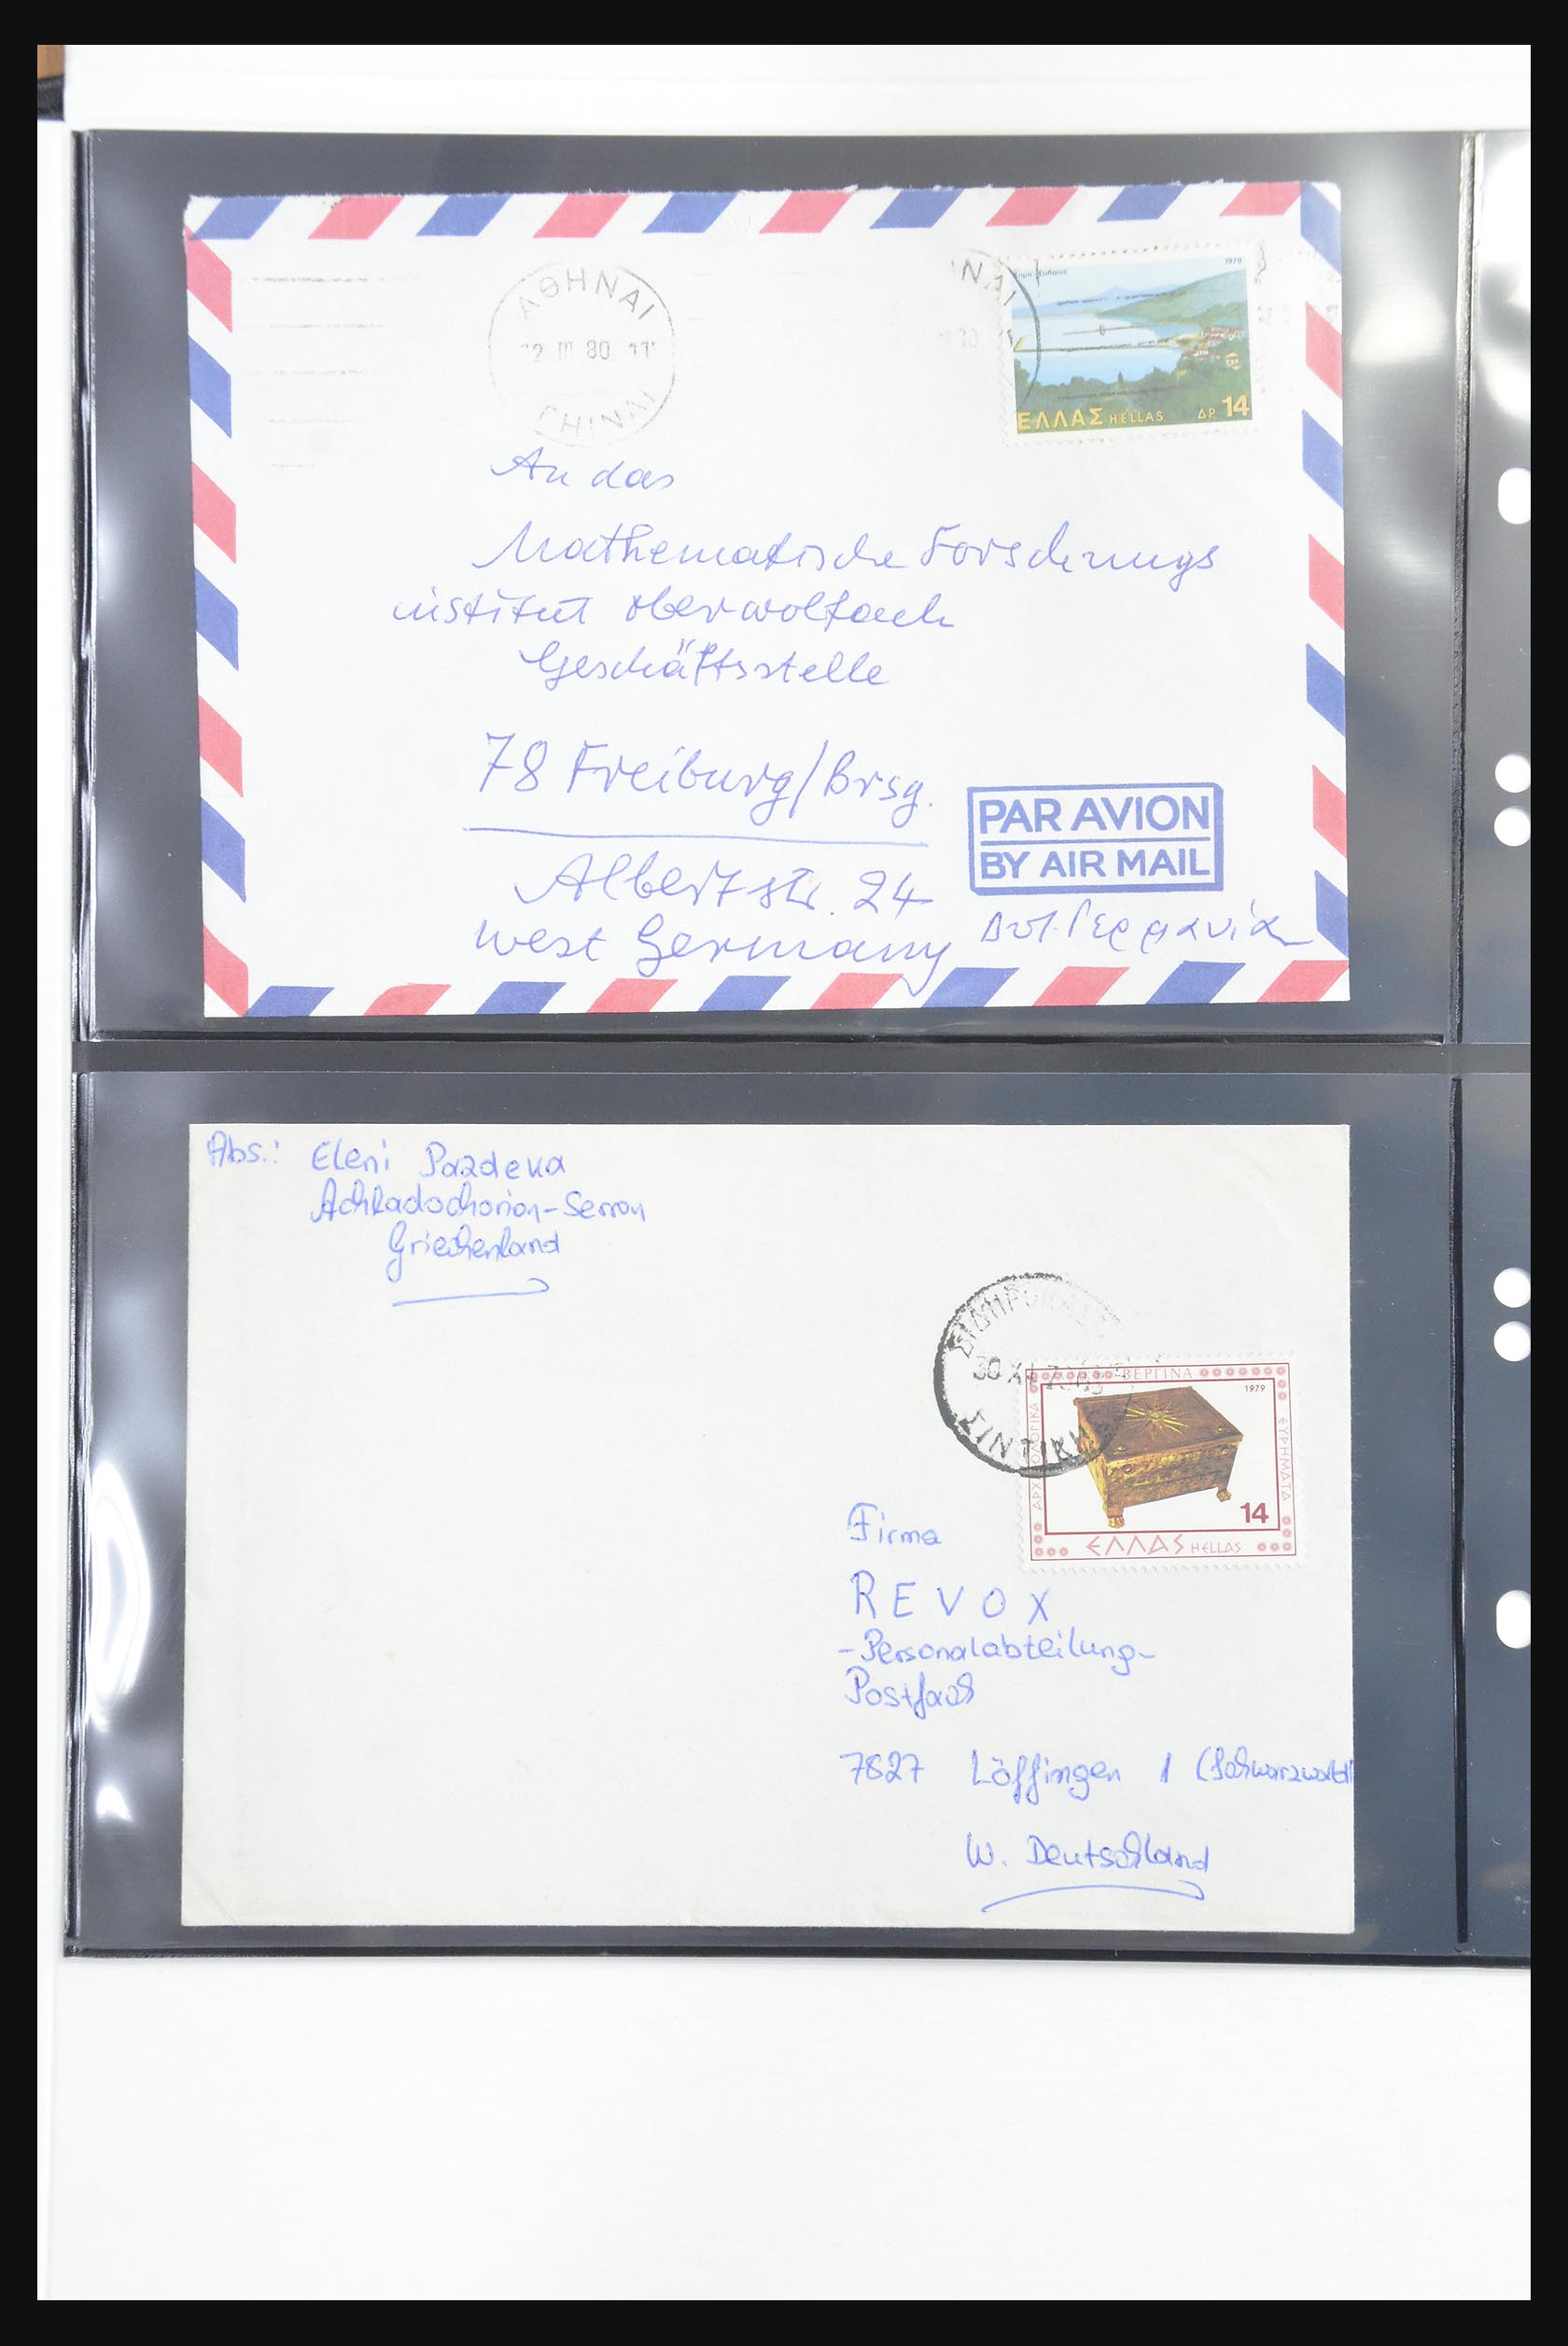 ΑΘΗΝΑΙ
80 11
ΝΑΙ
1979
ΕΛΛΑΣ HELLAS ΔΡ 14
An das
Mathematische Forschungs
institut Oberwolfach
Geschäftsstelle
78 Freiburg/Brsg.
PAR AVION
BY AIR MAIL
Albertstr. 24
West Germany
Δυτ. Γερμανία
Abs.: Eleni Pazdeka
Achladochorion-Serron
Griechenland
30 XI
ΣΙΝΤΙΚΗΣ
ΒΕΡΓΙΝΑ
1979
ΑΡΧΑΙΟΛΟΓΙΚΑ
ΕΥΡΗΜΑΤΑ
14
ΕΛΛΑΣ HELLAS
Firma
REVOX
-Personalabteilung-
Postfach
7827 Löffingen 1 (Schwarzwald)
W. Deutschland